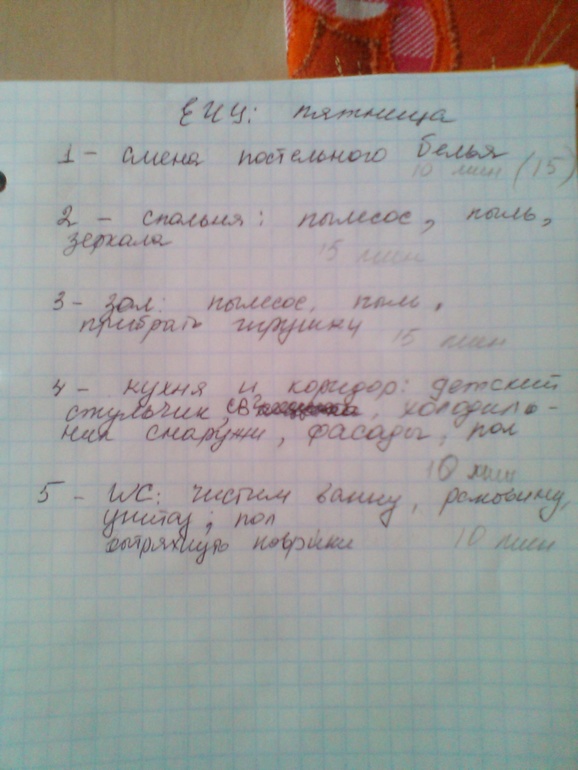 ЕНЦ: пятница
1 - смена постельного белья
10 мин (15)
2 - спальня: пылесос, пыль,
зеркала
15 мин
3 - зал: пылесос, пыль,
прибрать игрушки
15 мин
4 - кухня и коридор: детский
стульчик, СВЧ, холодиль-
ник снаружи, фасады, пол
10 мин
5 - WC: чистим ванну, раковину,
унитаз; пол
вытряхнуть коврики
10 мин